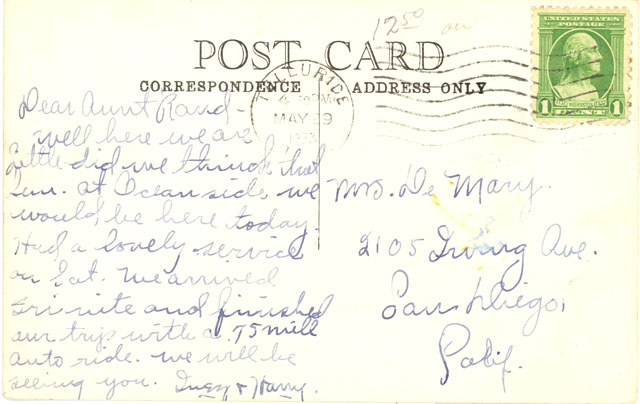 12 50
POST CARD
CORRESPONDENCE ADDRESS ONLY
TELLURIDE
MAY 9
UNITED STATES
POSTAGE
1 1
Dear Aunt
well here we are
Little did we think that
Sun. at Oceanside we
would be here today.
Had a lovely service
on Sat. We arrived
Fri nite and finished
our trip with a 75 mile
auto ride. We will be
seeing you. Inez & Harry.
Mrs. De Mary.
2105 Irving Ave.
San Diego,
Calif.